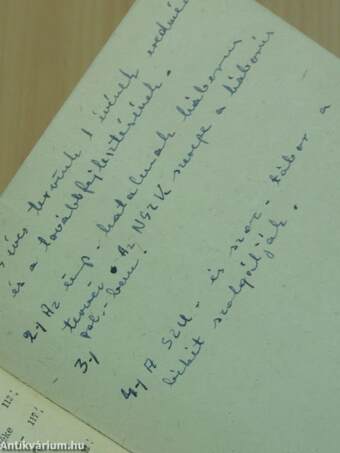 éves tervünk 1 évének eredmé
és a továbbfejlesztésének.
2-) Az imp-hatalmak háborús
tervei. Az NSZK szerepe a háborús
3-)
pol.-ban!
4-) A SZU- és szoc-tábor a
békét szolgálják.
112
117
Antikvárium.hu
antikvarium.hu